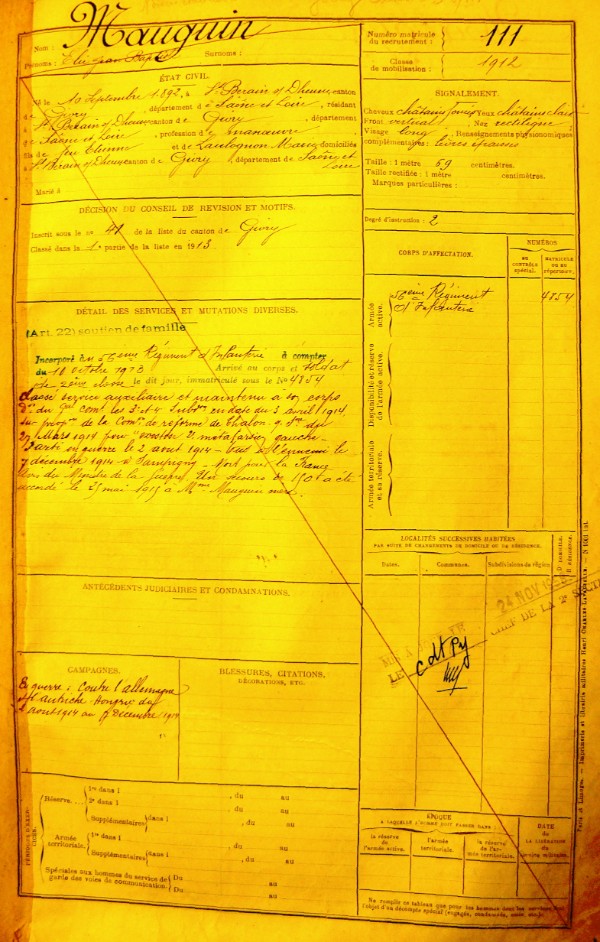 Nom : Mauguin
Prénoms : Jean Surnoms :
Numéro matricule du recrutement : 111
Classe de mobilisation : 1912
ÉTAT CIVIL.
Né le 10 Septembre 1892, à St Berain s/ Dheune, canton
de Givry, département de Saône et Loire, résidant
à St Berain s/ Dheune, canton de Givry, département
de Saône et Loire, profession de manœuvre
fils de feu Etienne et de Marie, domiciliés
à St Berain s/ Dheune, canton de Givry, département de Saône et Loire
Marié à
SIGNALEMENT.
Cheveux châtains Yeux châtains clairs
Front vertical Nez rectiligne
Visage long Renseignements physionomiques
complémentaires : lèvres épaisses
Taille : 1 mètre 69 centimètres.
Taille rectifiée : 1 mètre centimètres.
Marques particulières :
DÉCISION DU CONSEIL DE REVISION ET MOTIFS.
Inscrit sous le no 41 de la liste du canton de Givry
Classé dans la 1e partie de la liste en 1913
Degré d'instruction : 2
CORPS D'AFFECTATION.
NUMÉROS
AU CONTRÔLE spécial.
MATRICULE OU AU répertoire.
Armée active.
56ème Régiment d'Infanterie
4854
Disponibilité et réserve de l'armée active.
Armée territoriale et sa réserve.
DÉTAIL DES SERVICES ET MUTATIONS DIVERSES.
(Art. 22) soutien de famille
Incorporé au 56ème Régiment d'Infanterie à compter
du 10 octobre 1913 Arrivé au corps et soldat
de 2ème classe le dit jour, immatriculé sous le No 4854
Classé service auxiliaire et maintenu à son corps
en date du 3 avril 1914
de la Comon de réforme de Chalon s/ Sne du
27 Mars 1914 pour gauche
Parti en guerre le 2 août 1914 - Tué à l'ennemi le
7 décembre 1914 à Sampigny - Mort pour la France
du Ministre de la guerre. Un secours de 150 a été
accordé le 25 mai 1915 à Mme Mauguin mère.
LOCALITÉS SUCCESSIVES HABITÉES
PAR SUITE DE CHANGEMENTS DE DOMICILE OU DE RÉSIDENCE.
Dates.
Communes.
Subdivisions de région.
D domicile.
R résidence.
24 NOV
LE CHEF DE LA 2e
ANTÉCÉDENTS JUDICIAIRES ET CONDAMNATIONS.
CAMPAGNES.
guerre : Contre l'allemagne
et Autriche Hongrie du
2 août 1914 au 7 décembre 1914
BLESSURES, CITATIONS,
DÉCORATIONS, ETC.
PÉRIODES D'EXERCICES.
Réserve
1re dans l , du au
2e dans l , du au
Supplémentaires dans l , du au
Armée territoriale.
1re dans l , du au
Supplémentaires dans l , du au
Spéciales aux hommes du service de garde des voies de communication.
Du au
Du au
ÉPOQUE
A LAQUELLE L'HOMME DOIT PASSER DANS :
la réserve de l'armée active.
l'armée territoriale.
la réserve de l'armée territoriale.
DATE DE LA LIBÉRATION du service militaire.